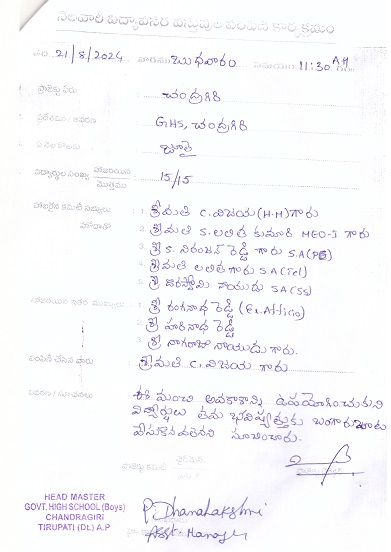 నెలవారి విద్యావసర వస్తువుల పంపిణి కార్యక్రమం
తేది 21/8/2024 వారము బుధవారం సమయం 11:30 AM
ప్రాజెక్టు పేరు : చంద్రగిరి
ప్రదేశము : GHS, చంద్రగిరి
ఏ నెల కొరకు : జూలై
విద్యార్థుల సంఖ్య హాజరయిన/మొత్తము : 15/15
హాజరైన కమిటీ సభ్యులు : 1. శ్రీమతి C. విజయ (H.M) గారు
హోదాతో 2. శ్రీమతి S. లలిత కుమారి MEO-I గారు
3. శ్రీ S. నిరంజన్ రెడ్డి గారు S.A (PS)
4. శ్రీమతి లలిత గారు S.A (Tel)
5. శ్రీ నాయుడు S.A (SS)
హాజరయిన ఇతర ముఖ్యులు : 1. శ్రీ రంగనాథ రెడ్డి (Ex. Officio)
2. శ్రీ హరినాథ రెడ్డి
3. శ్రీ నాగరాజు నాయుడు గారు.
పంపిణీ చేసిన వారు : శ్రీమతి C. విజయ గారు
వివరణ / సూచనలు : ఈ మంచి అవకాశాన్ని ఉపయోగించుకుని
విద్యార్థులు తమ భవిష్యత్తుకు బంగారుబాట
వేసుకొనవలెనని సూచించారు.
ప్రాజెక్టు కమిటీ
HEAD MASTER
GOVT. HIGH SCHOOL (Boys)
CHANDRAGIRI
TIRUPATI (DL) A.P
P. Dhanalakshmi
Asst Manager